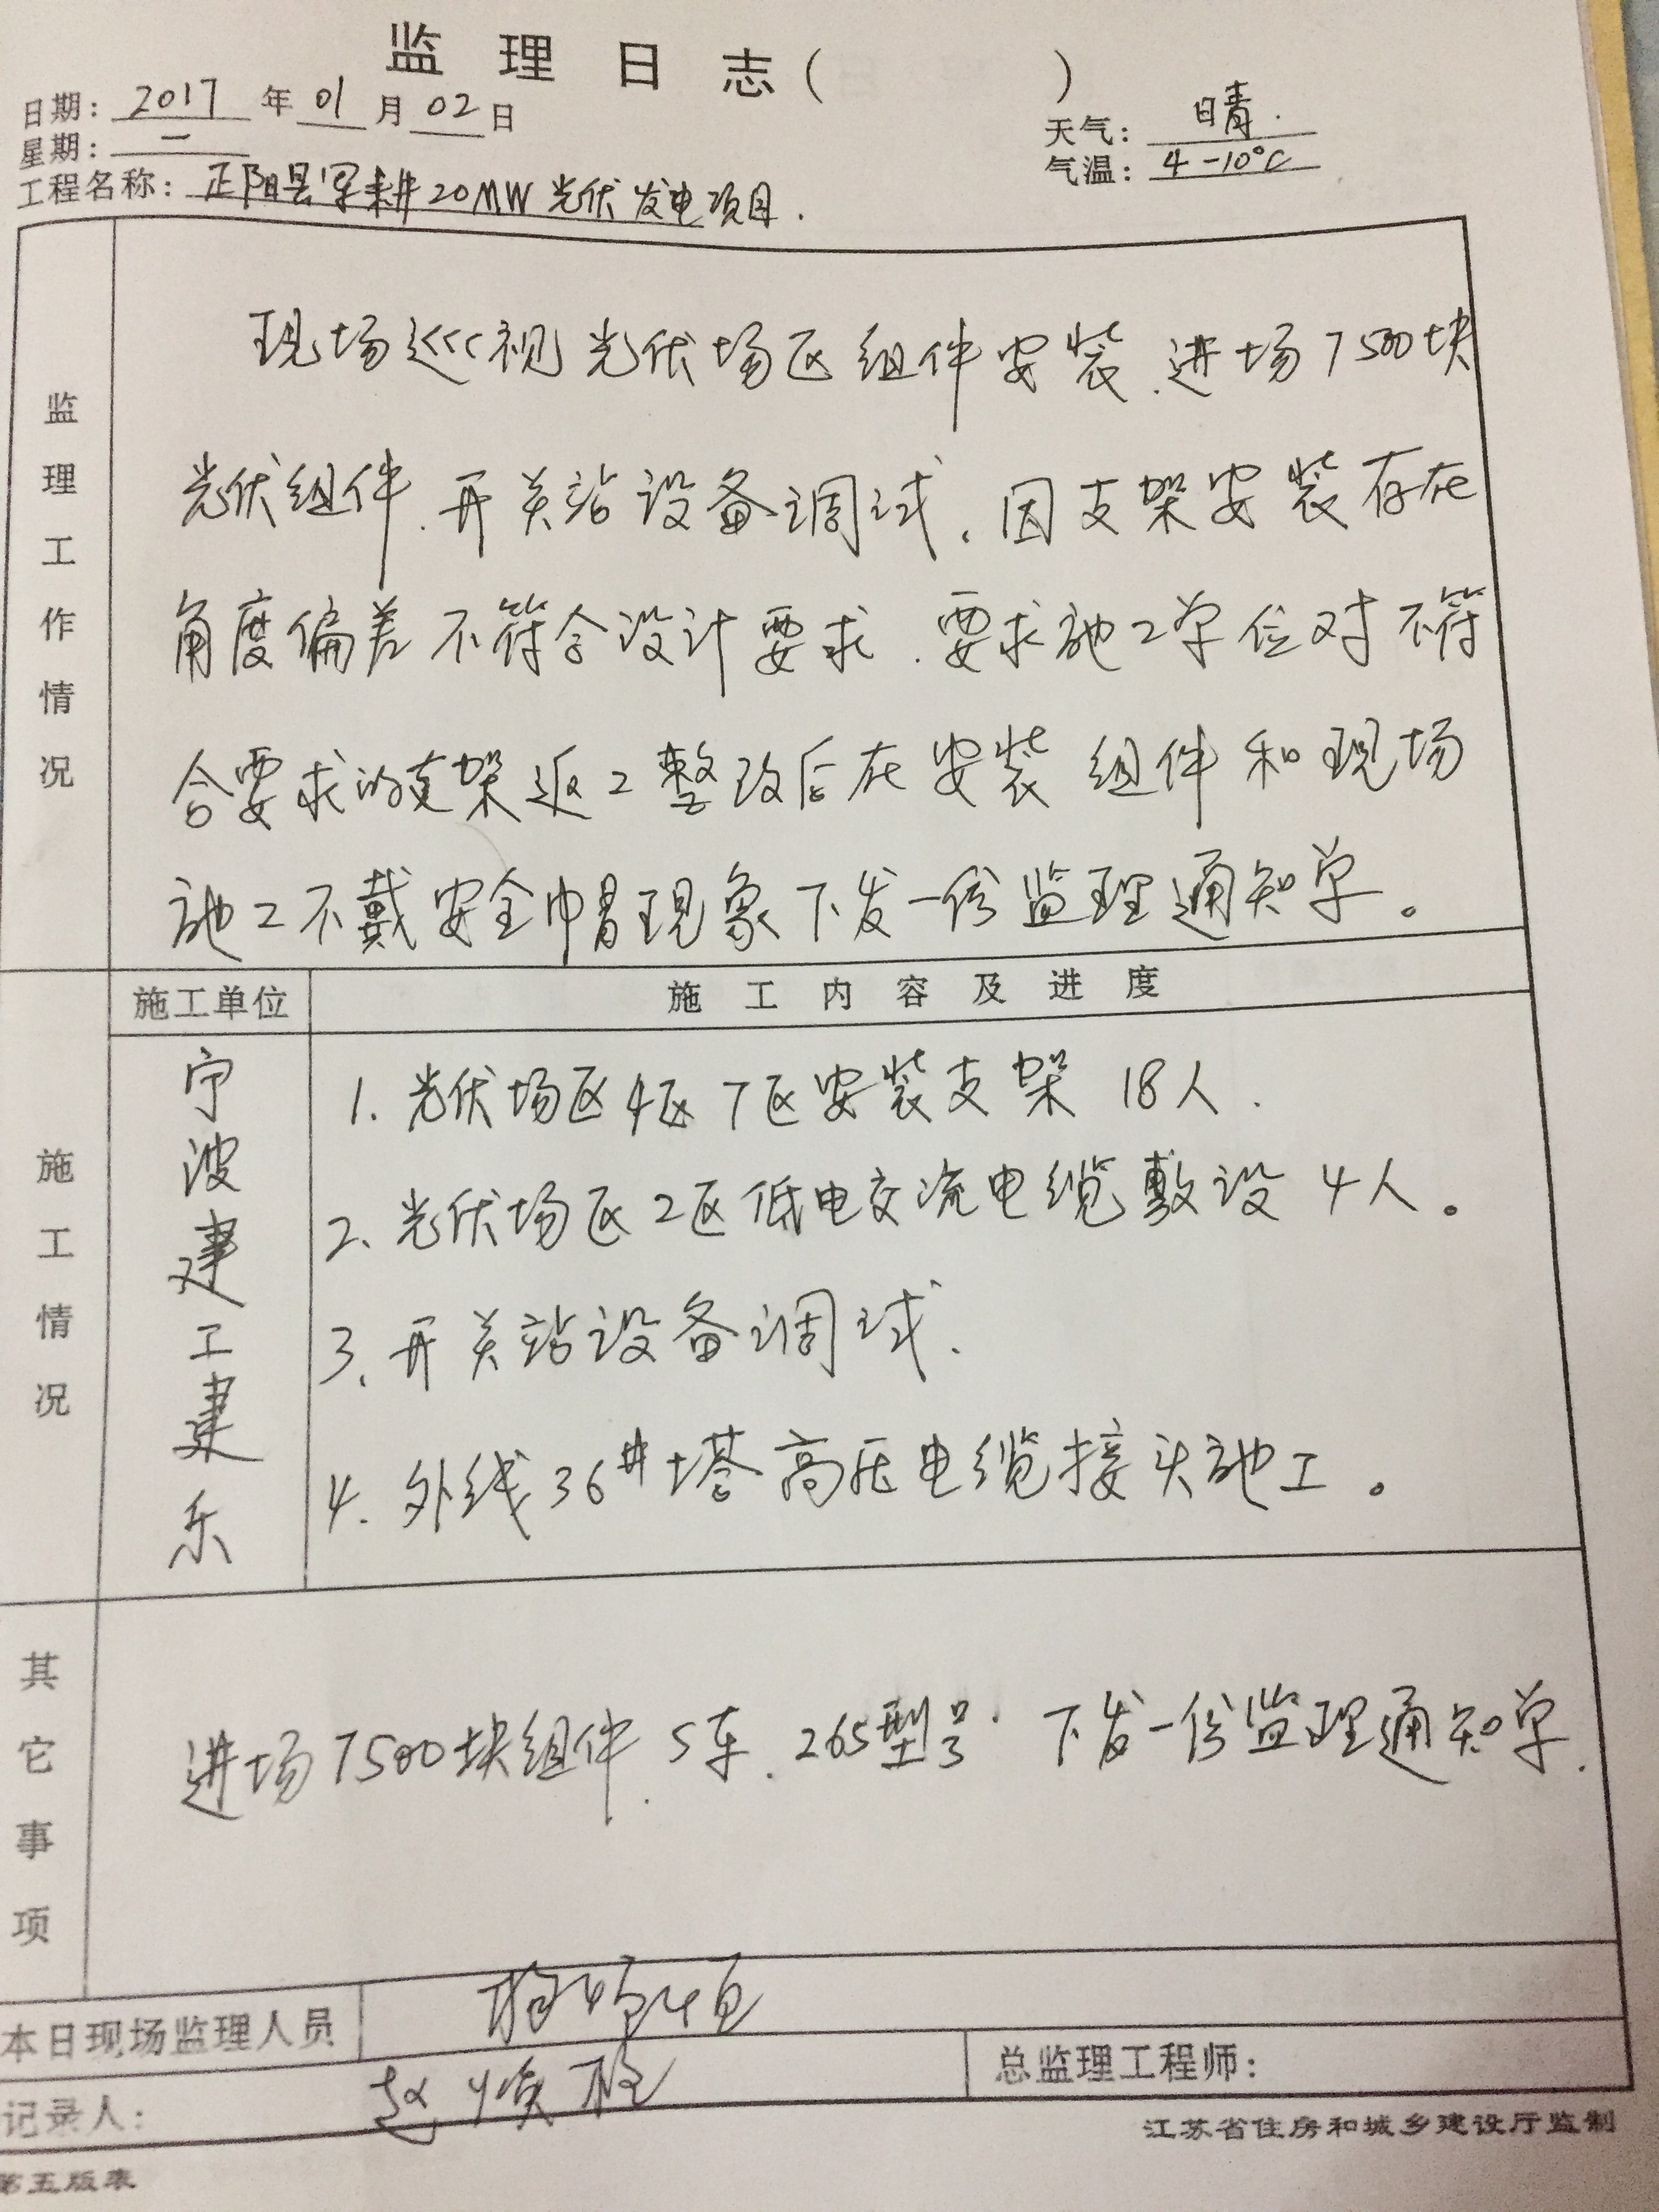 监理日志(　　　)
日期：2017年01月02日
天气：晴.
星期：一
气温：4-10℃
工程名称：正阳县军耕20MW光伏发电项目.
监理工作情况
现场巡视光伏场区组件安装.进场7500块
光伏组件.开关站设备调试.因支架安装存在
角度偏差不符合设计要求.要求施工单位对不符
合要求的支架返工整改后在安装组件和现场
施工不戴安全帽现象下发一份监理通知单。
施工情况
施工单位
施工内容及进度
宁波建工建乐
1.光伏场区4区7区安装支架 18人.
2、光伏场区2区低电交流电缆敷设 4人。
3、开关站设备调试.
4.外线36#塔高压电缆接头施工。
其它事项
进场7500块组件.5车.265型号.下发一份监理通知单.
本日现场监理人员
记录人：赵
总监理工程师：
江苏省住房和城乡建设厅监制
第五版表